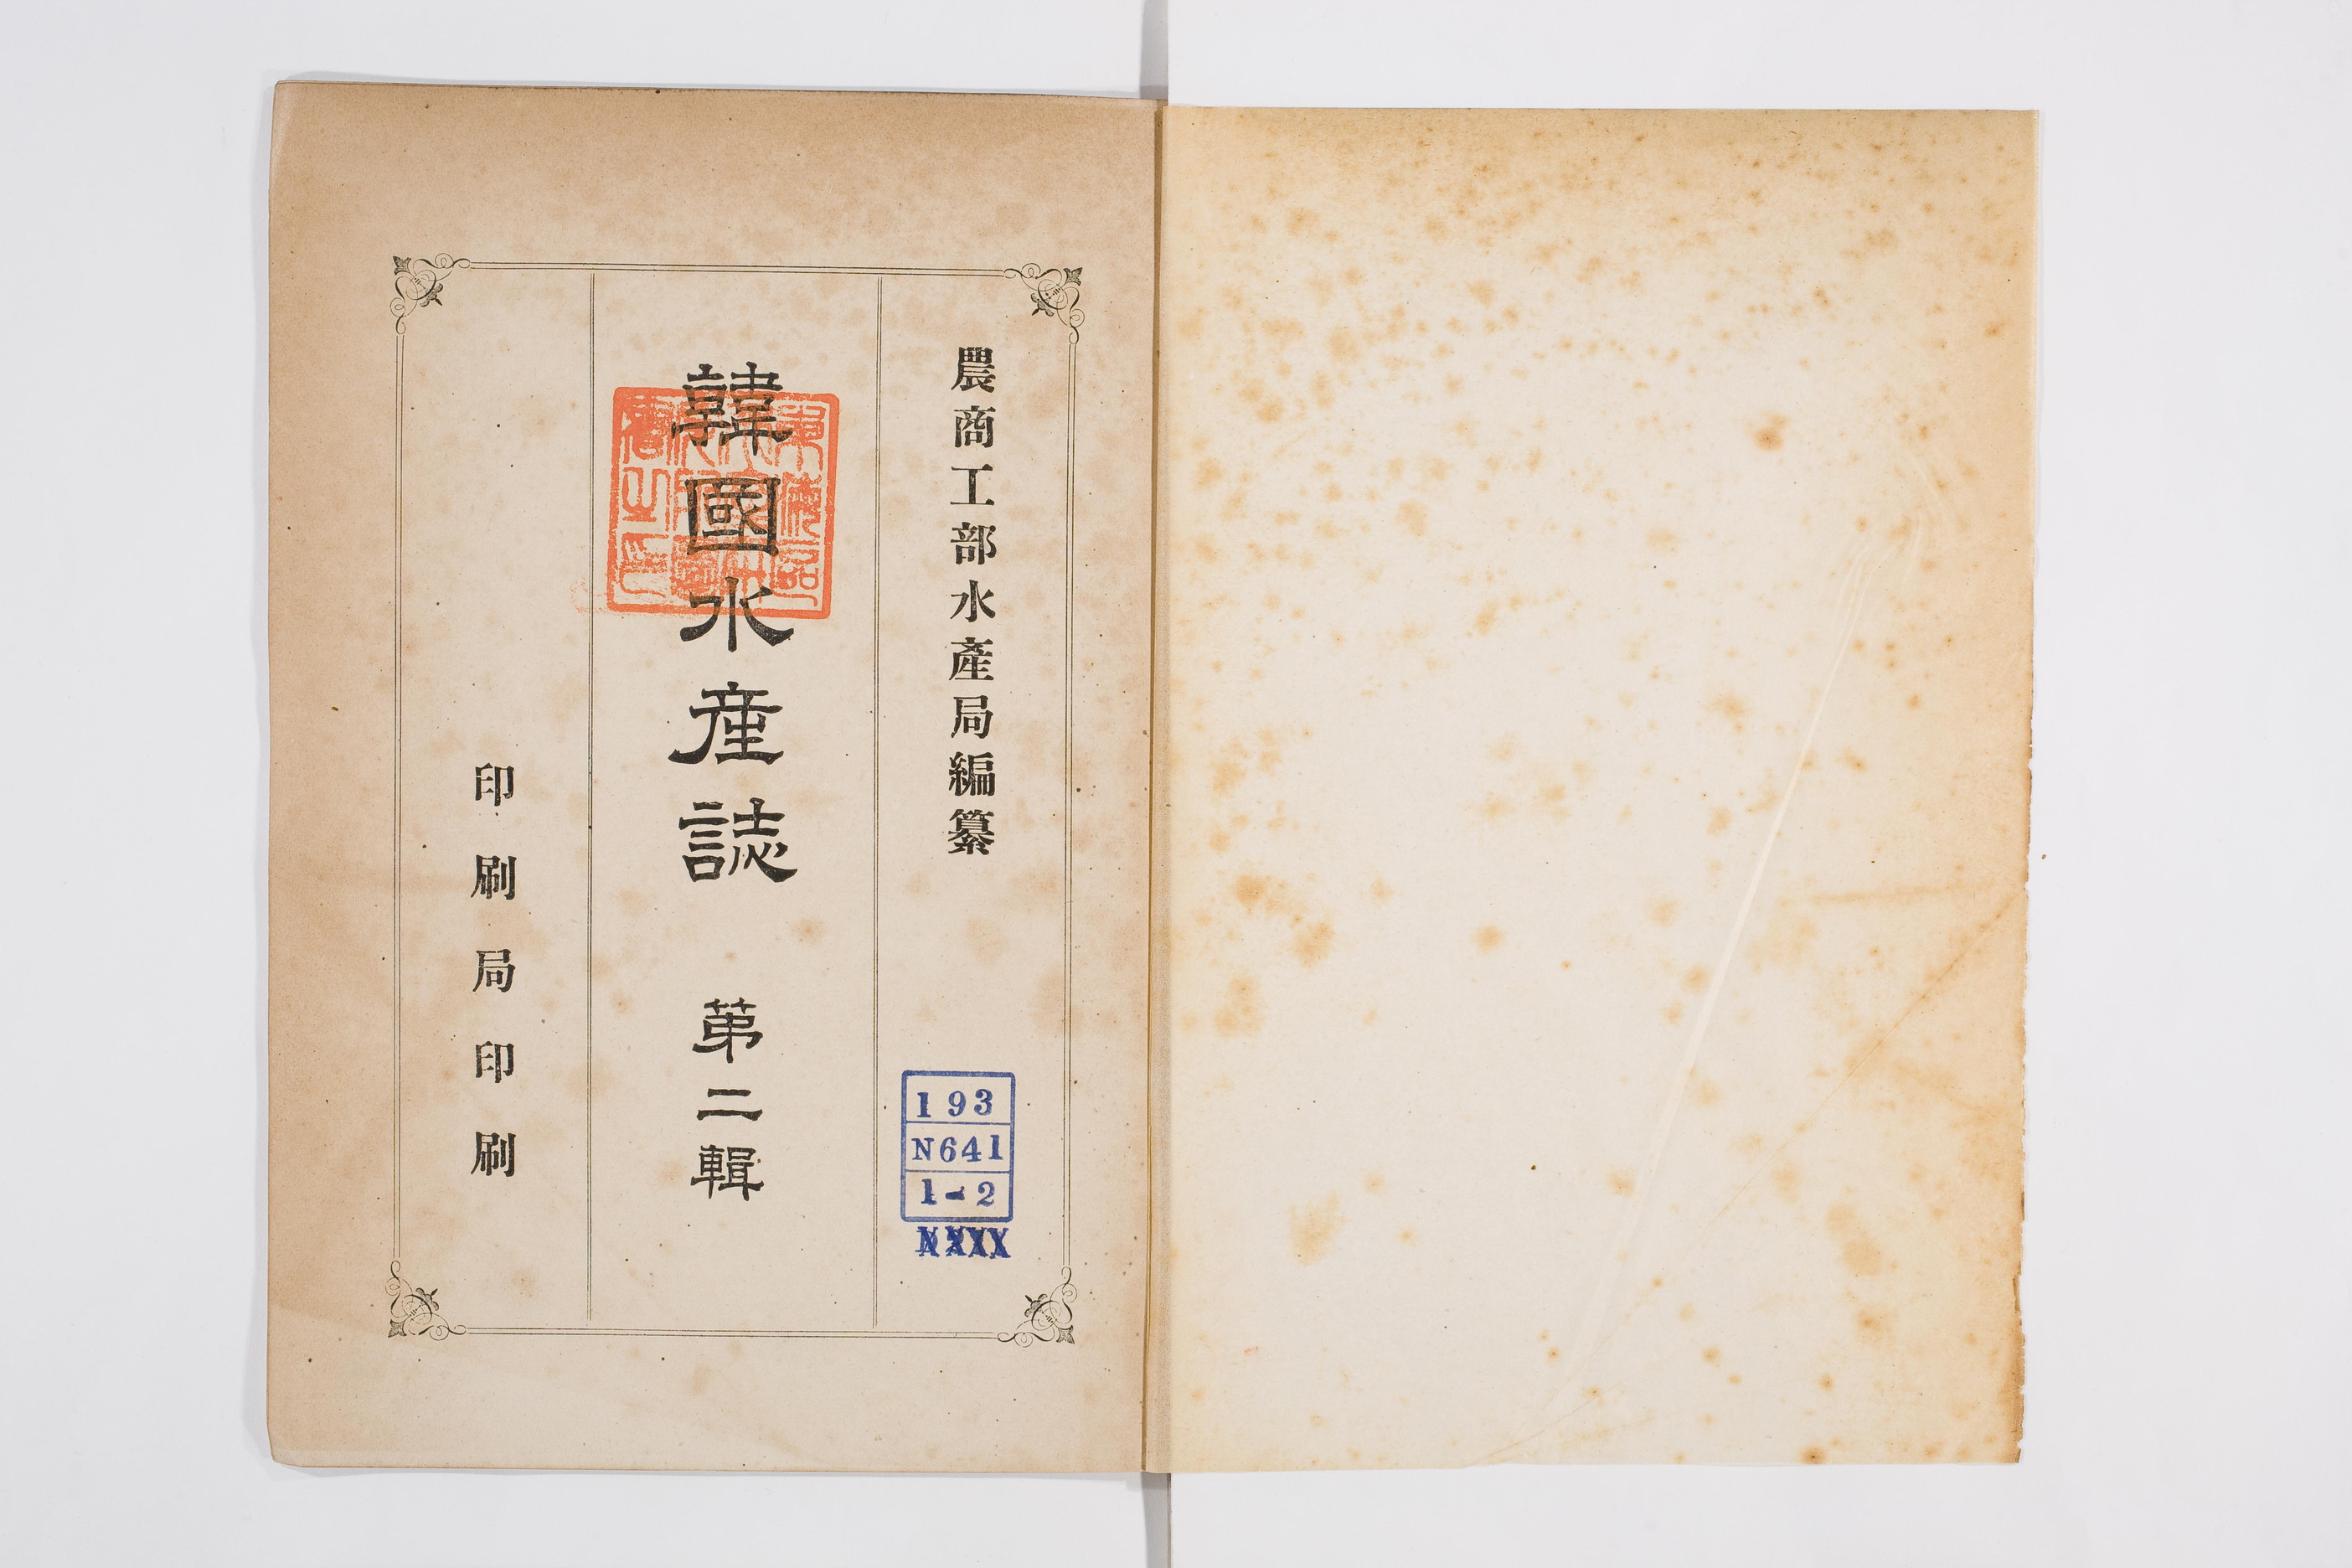 農商工部水產局編纂
韓國水産誌 第二輯
印刷局印刷
193
N641
1-2